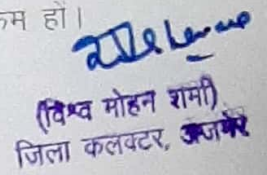 म हों।
(विश्व मोहन शर्मा)
जिला कलक्टर, अजमेर